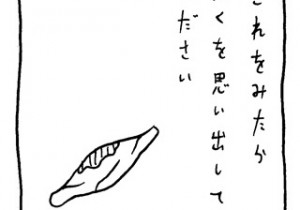 これをみたら
くを思い出して
ださい